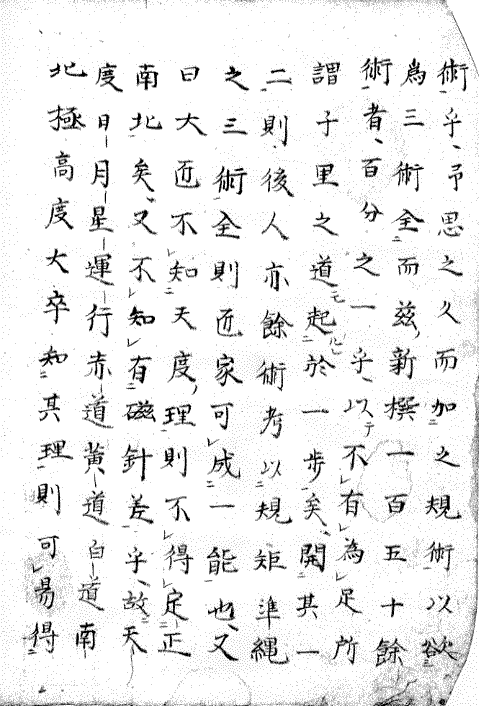 術乎、予思之久而加之規術以欲
為三術全而茲、新撰一百五十餘
術者、百分之一乎、以不有為足所
謂子里之道起於一歩矣、開其一
二則後人亦餘術考以規矩準縄
之三術全則匠家可成一能也、又
曰大匠不知天度、理則不得定正
南北矣、又不知有磁針差乎、故天
度日月星運行赤道黄道白道南
北極高度大卒知其理則可易得